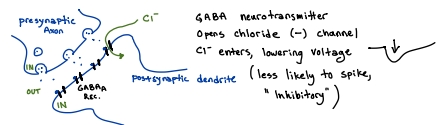 presynaptic
Axon
Cl⁻
IN
OUT
IN
GABAA
Rec.
postsynaptic dendrite
GABA neurotransmitter
Opens chloride (-) channel
Cl⁻ enters, lowering voltage
(less likely to spike,
"Inhibitory")